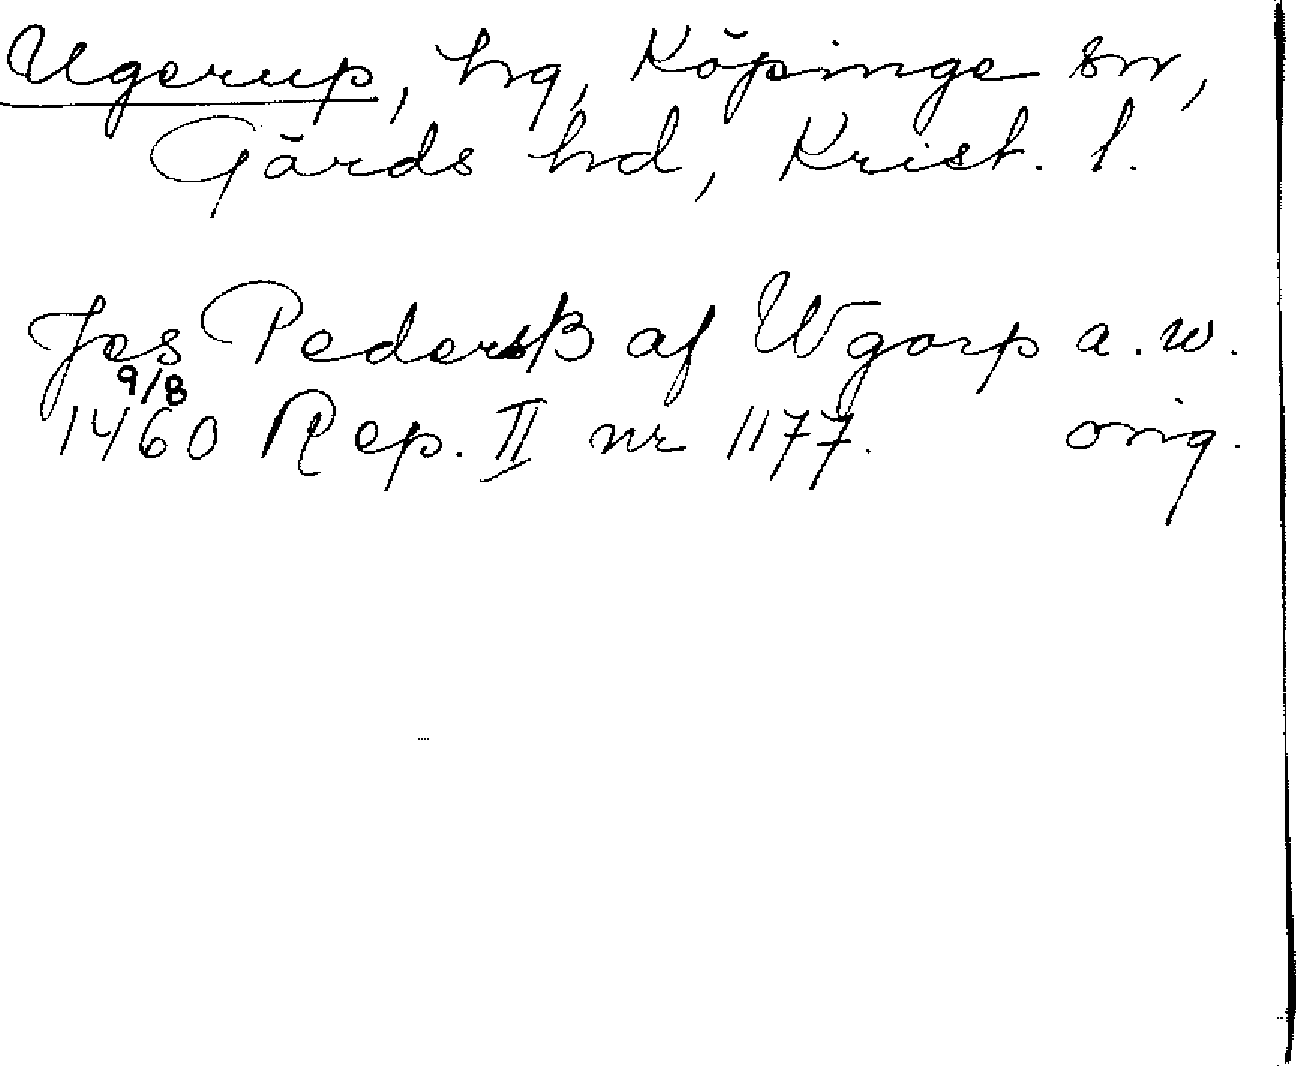 Ugerup, hg, Köpinge sn,
Gärds hd, Krist. l.
Jes Pedersß af Wgorp a.w.
9/8
1460 Rep. II nr 1177. orig.